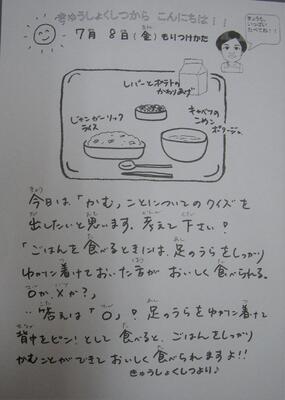 きゅうしょくしつから こんにちは！！
きょうも、
いっぱい
たべてね！！
7月 8日(金) もりつけかた
レバーとポテトの
かわりあげ
ジャンガーリック
ライス
キャベツの
ポタージュ
今日は「かむ」ことについてのクイズを
出したいと思います。考えて下さい！
「ごはんを食べるときには、足のうらをしっかり
ゆかに着けておいた方がおいしく食べられる。
○か、×か？」
答えは「○」！足のうらをゆかに着けて
背中をピン！として食べると、ごはんをしっかり
かむことができておいしく食べられますよ!!
きゅうしょくしつより♪